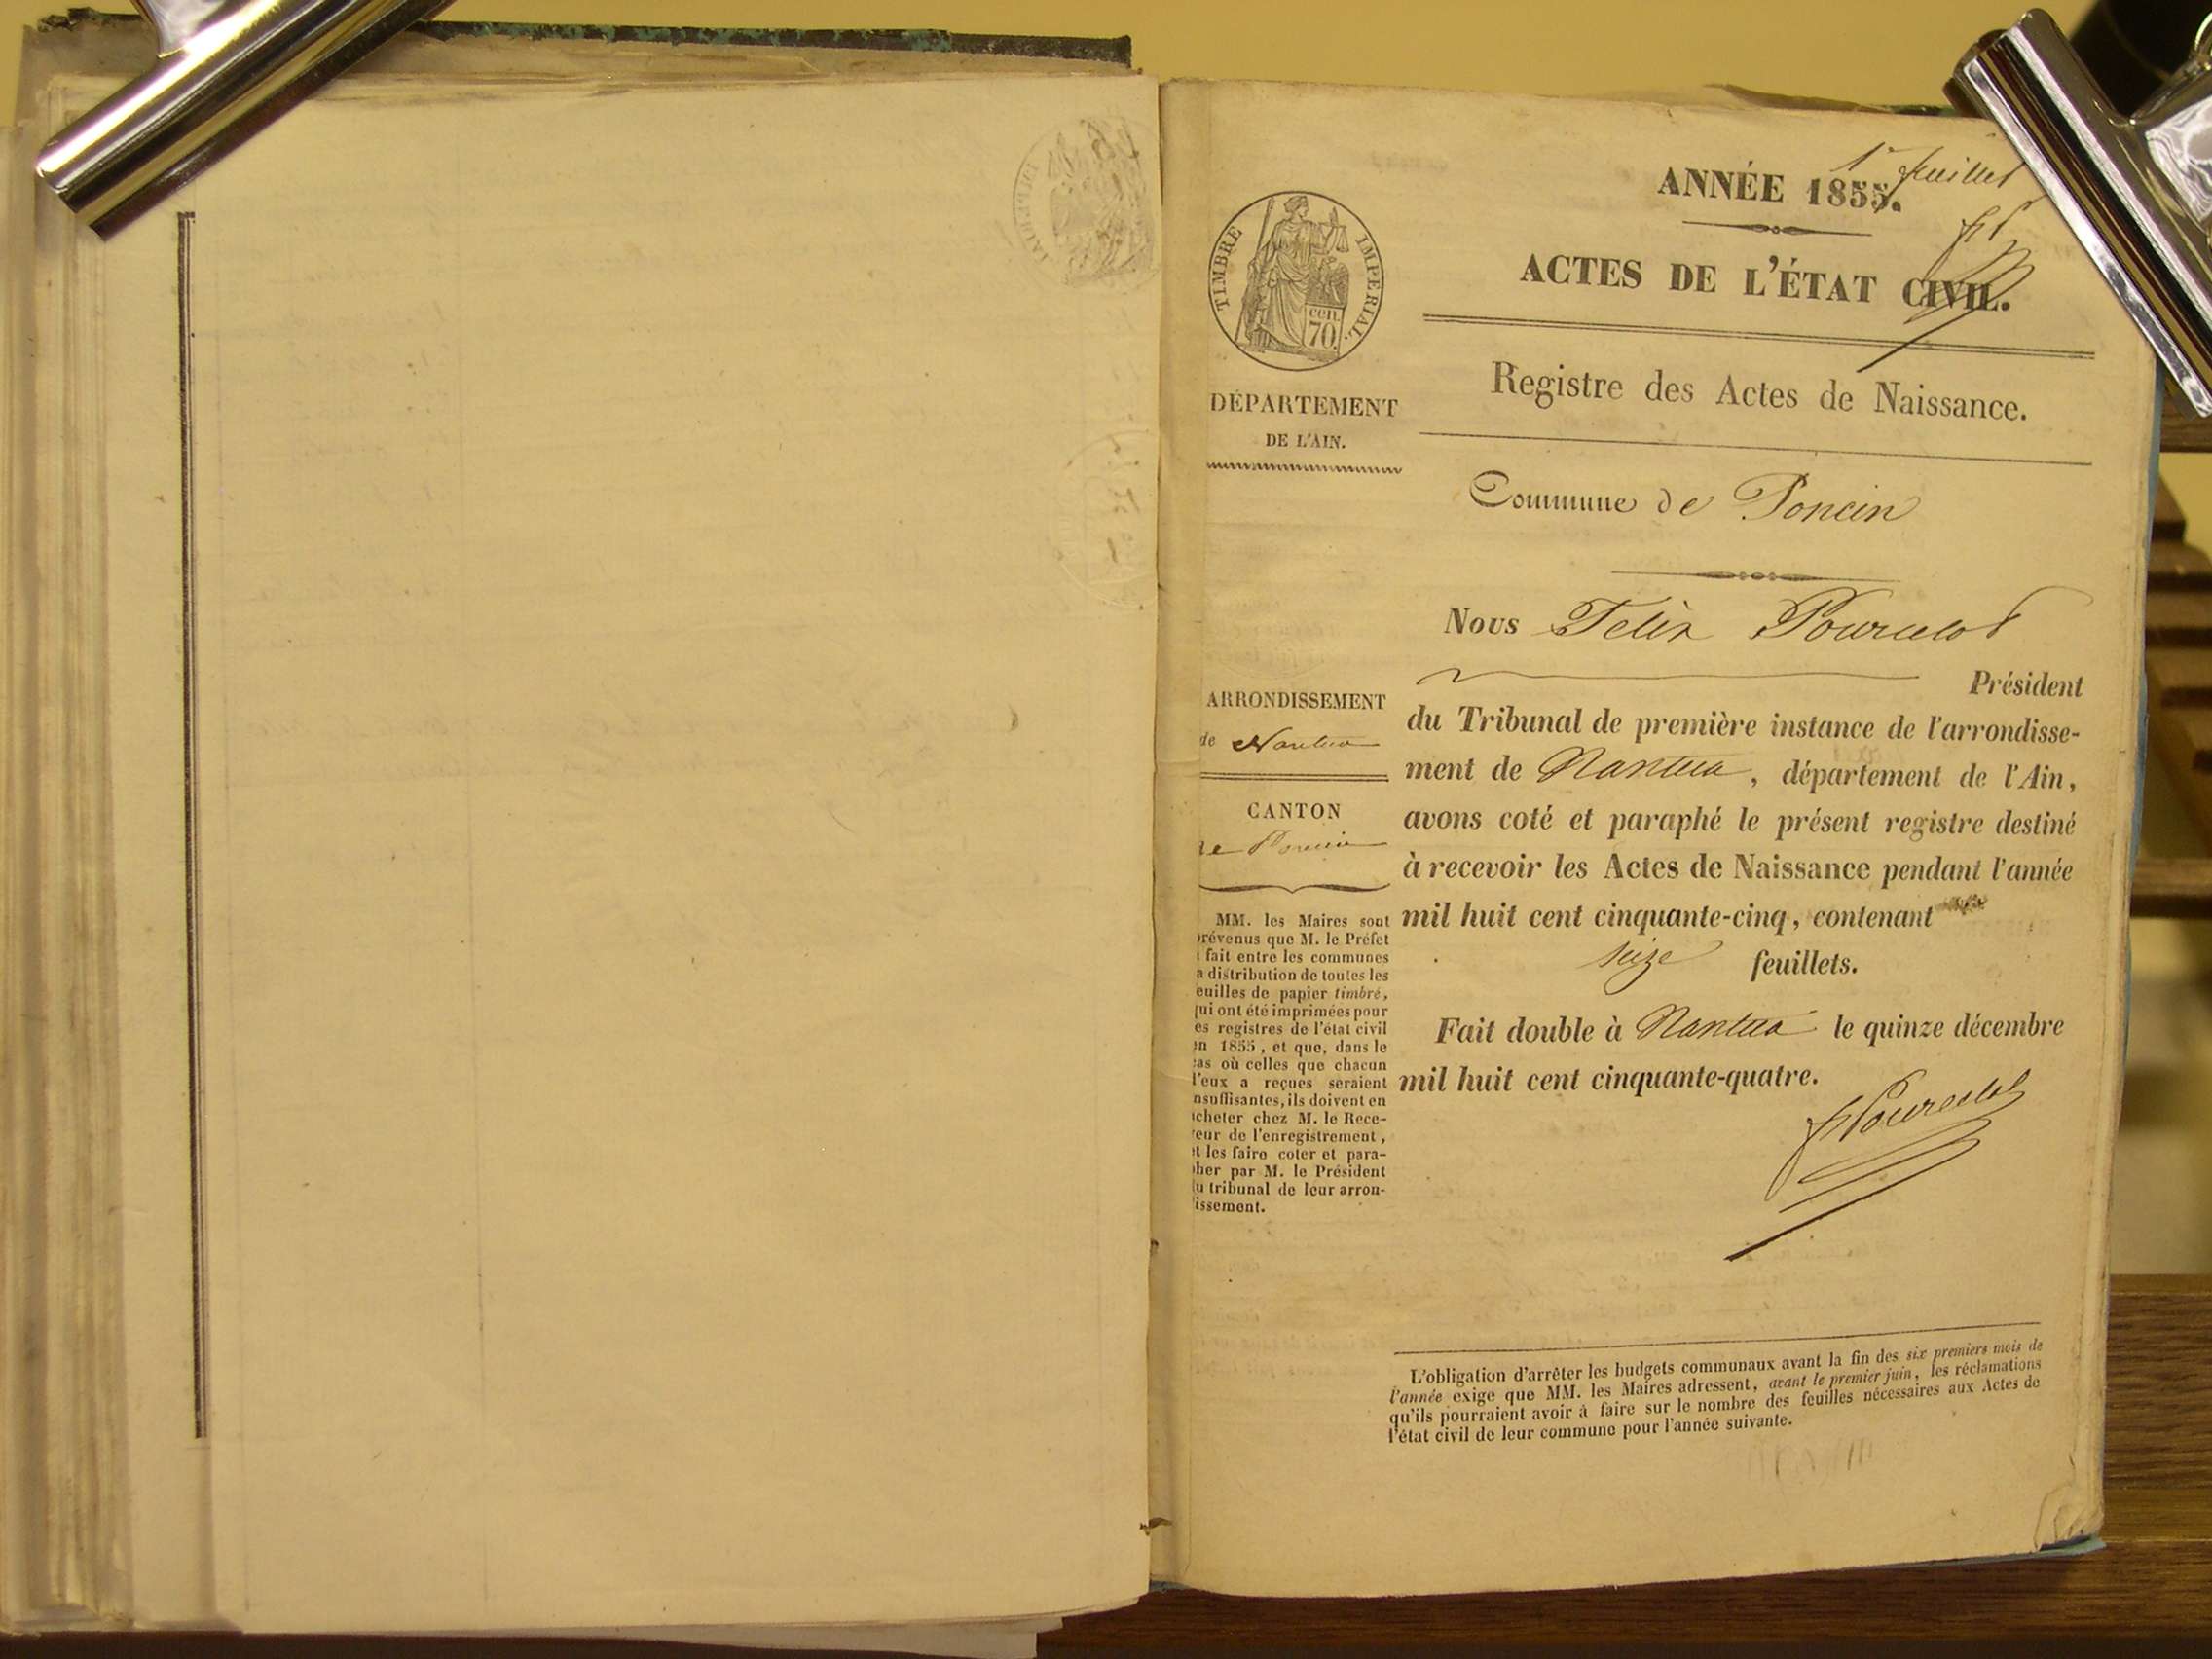 1er feuillet
ANNÉE 1855.
TIMBRE IMPERIAL
cen. 70.
ACTES DE L'ÉTAT CIVIL.
Registre des Actes de Naissance.
DÉPARTEMENT
DE L'AIN.
Commune de Poncin
Nous Felix Pourcelot
Président
du Tribunal de première instance de l'arrondisse-
ment de Nantua, département de l'Ain,
avons coté et paraphé le présent registre destiné
à recevoir les Actes de Naissance pendant l'année
mil huit cent cinquante-cinq, contenant
seize feuillets.
Fait double à Nantua le quinze décembre
mil huit cent cinquante-quatre.
fPourcelot
ARRONDISSEMENT
de Nantua
CANTON
de Poncin
MM. les Maires sont
révenus que M. le Préfet
fait entre les communes
a distribution de toutes les
euilles de papier timbré,
qui ont été imprimées pour
es registres de l'état civil
en 1855, et que, dans le
cas où celles que chacun
d'eux a reçues seraient
nsuffisantes, ils doivent en
acheter chez M. le Rece-
veur de l'enregistrement,
et les faire coter et para-
pher par M. le Président
du tribunal de leur arron-
dissement.
L'obligation d'arrêter les budgets communaux avant la fin des six premiers mois de
l'année exige que MM. les Maires adressent, avant le premier juin, les réclamations
qu'ils pourraient avoir à faire sur le nombre des feuilles nécessaires aux Actes de
l'état civil de leur commune pour l'année suivante.